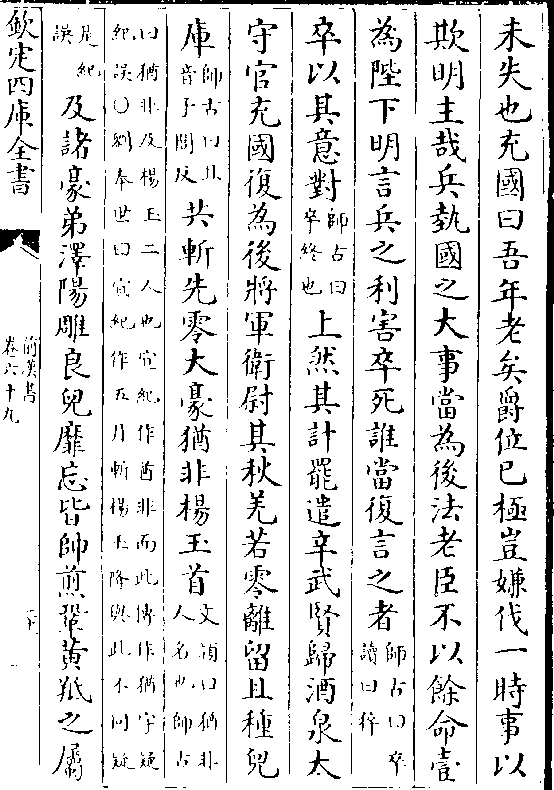 未失也充國曰吾年老矣爵位已極豈嫌伐一時事以
欺明主哉兵埶國之大事當為後法老臣不以餘命壹
為陛下明言兵之利害卒死誰當復言之者師古曰卒
讀曰猝
卒以其意對師古曰
卒終也上然其計罷遣辛武賢歸酒泉太
守官充國復為後將軍衛尉其秋羌若零離留且種兒
庫師古曰且
音子閭反共斬先零大豪猶非楊玉首文潁曰猶非
人名也師古
曰猶非及楊玉二人也宣紀作酋非而此傳作猶字疑
紀誤○劉奉世曰宣紀作五月斬楊玉降與此不同疑
是紀
誤及諸豪弟澤陽雕良兒靡忘皆帥煎鞏黃羝之屬
欽定四庫全書
前漢書
卷六十九